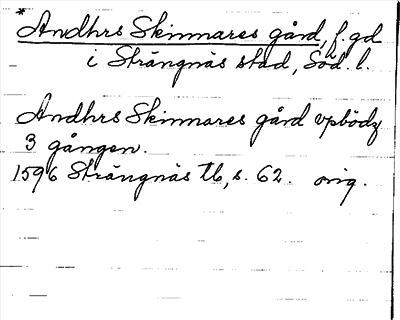 * Andhrs Skinnares gård, f. gd
i Strängnäs stad, Söd. l.
Andhrs Skinnares gård vpbödz
3 gången.
1596 Strängnäs tb, s. 62. orig.